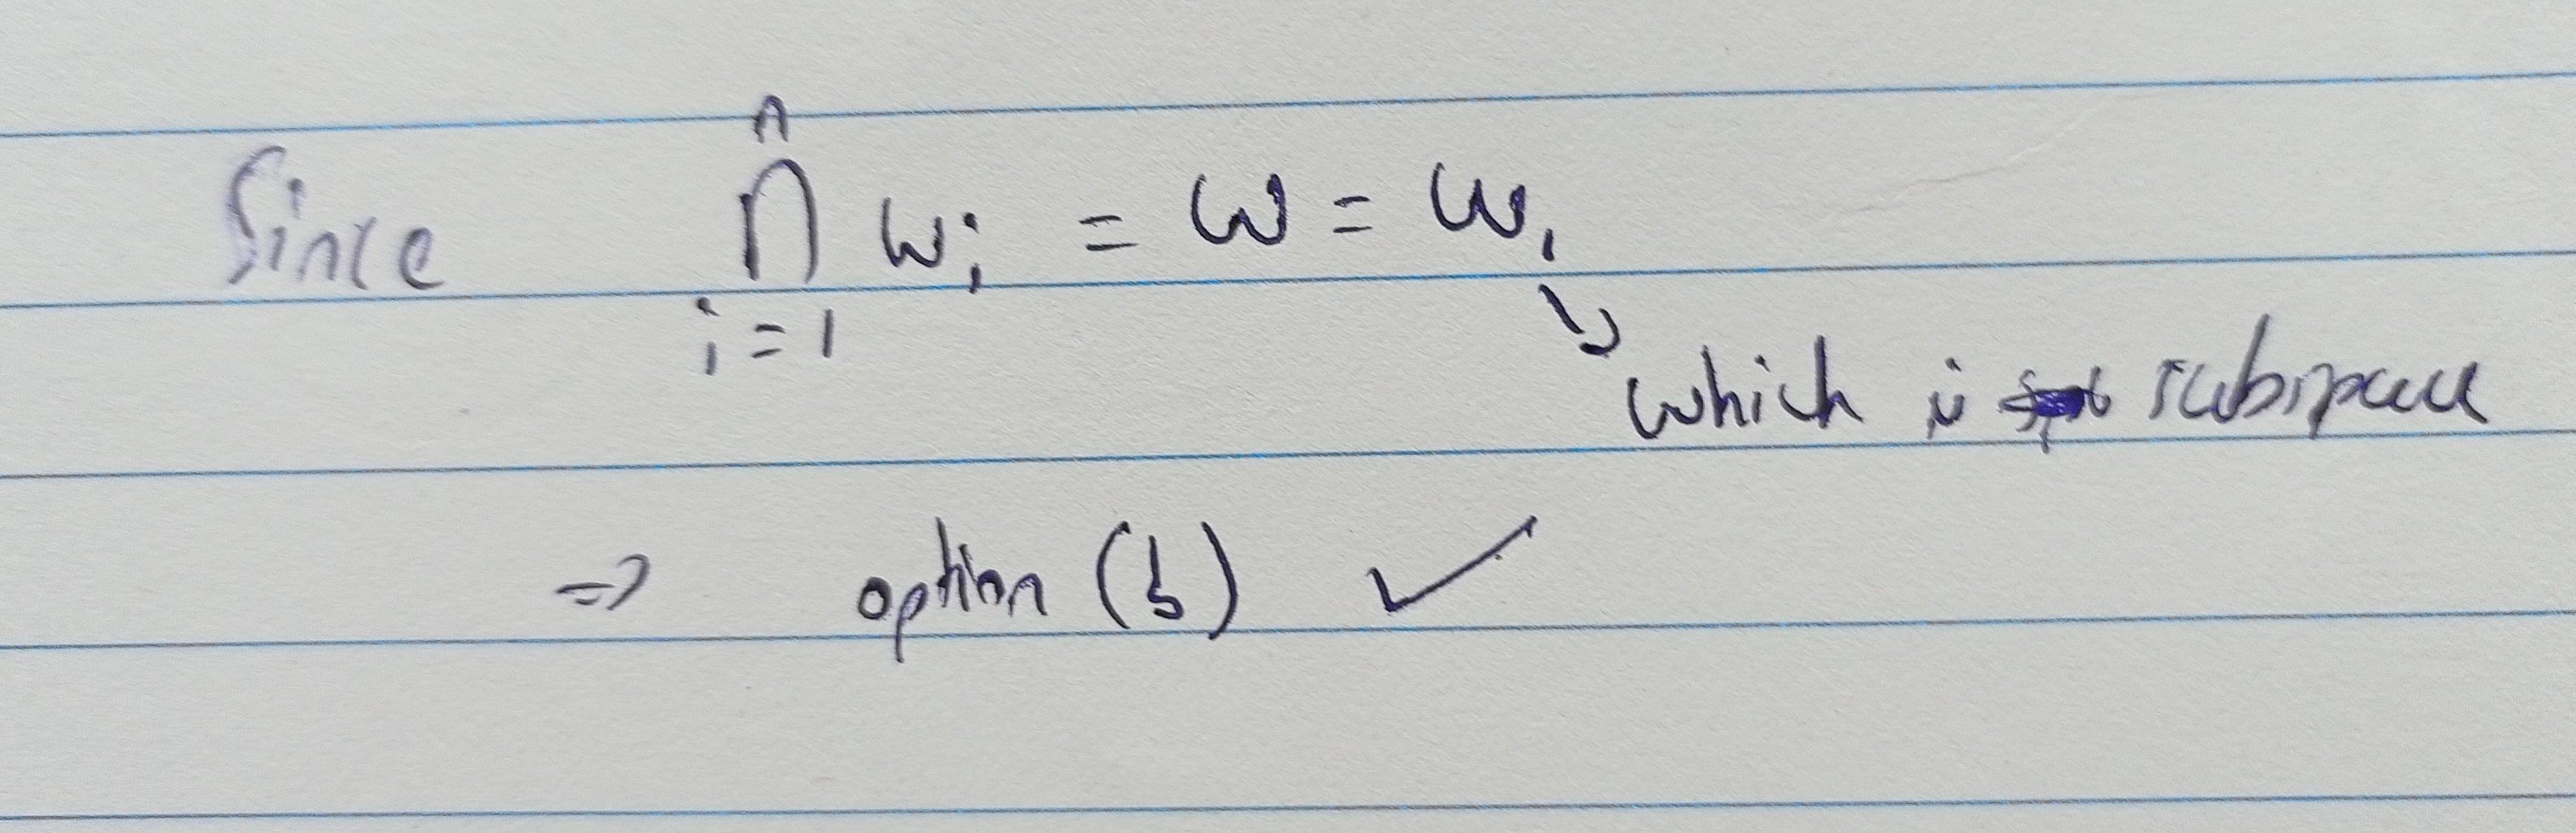 Since ⋂ⁿᵢ₌₁ wᵢ = w = wᵢ
↳ which is subspace
⇒ option (b) ✓